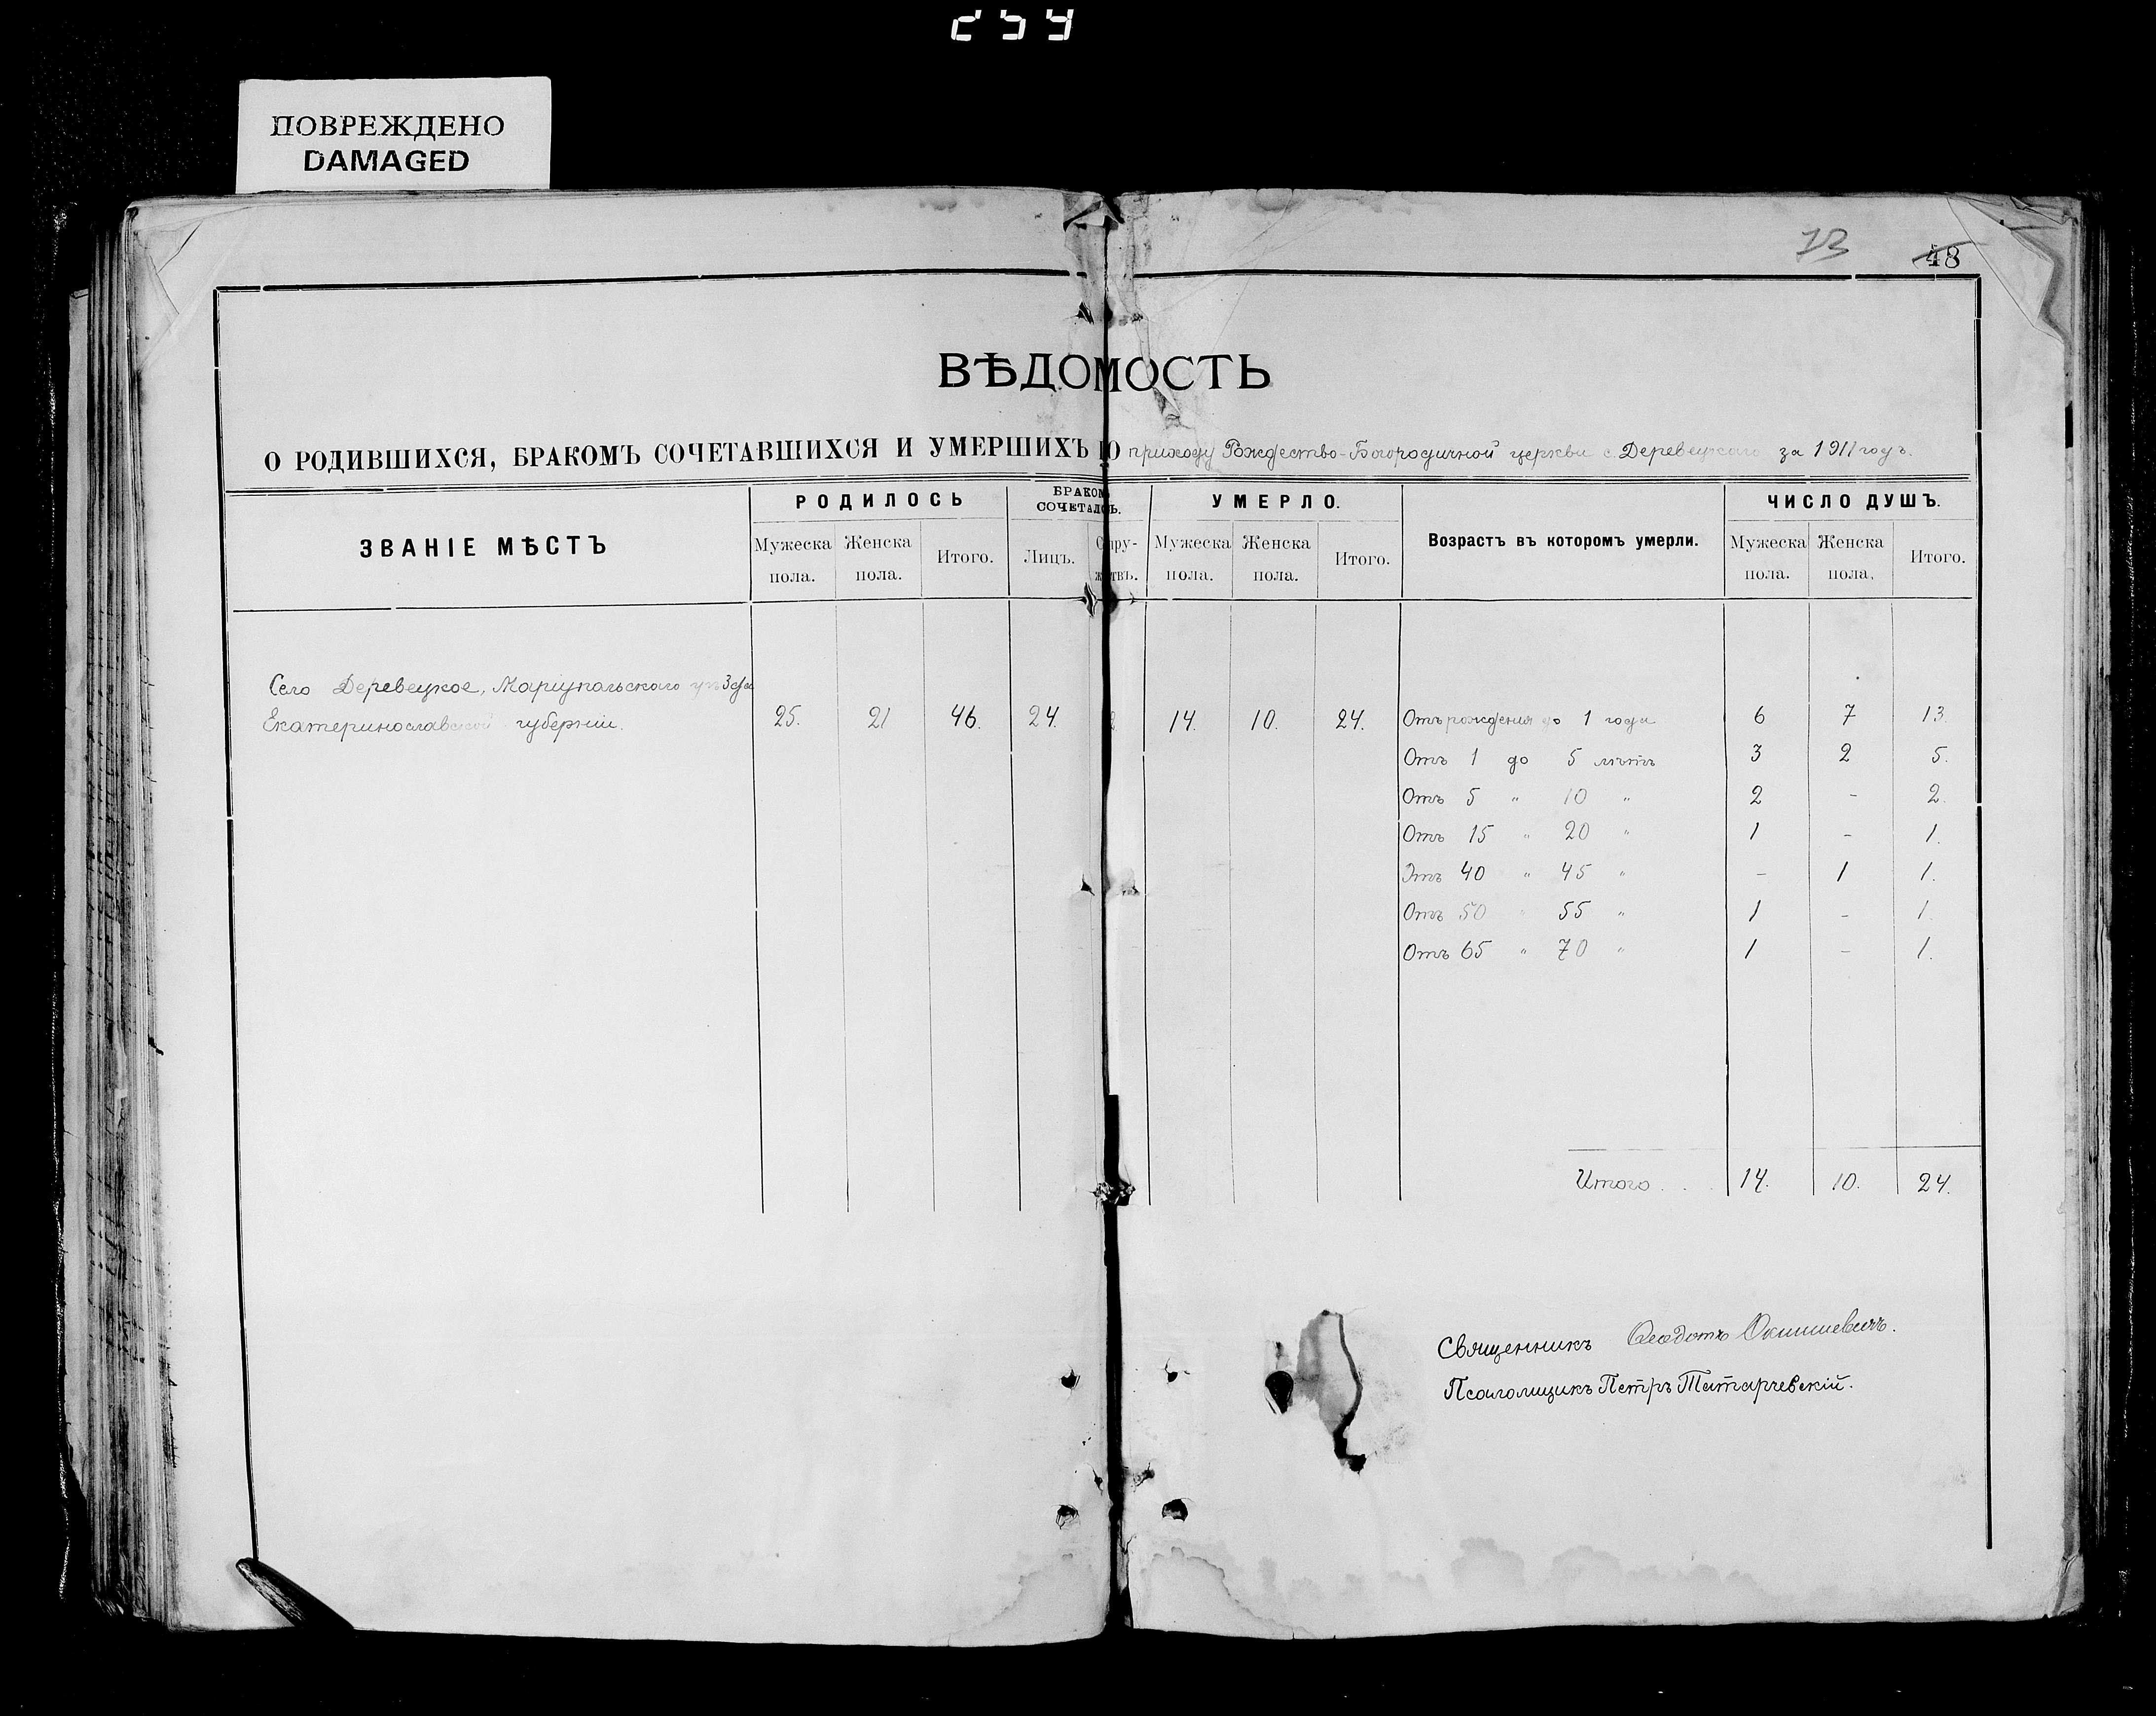 254
ПОВРЕЖДЕНО
DAMAGED
73
48
ВѢДОМОСТЬ
О РОДИВШИХСЯ, БРАКОМЪ СОЧЕТАВШИХСЯ И УМЕРШИХЪ ПО приходу Рождество-Богородичной церкви с. Деревецкаго за 1911 годъ.
ЗВАНІЕ МѢСТЪ
РОДИЛОСЬ
Мужеска пола.
Женска пола.
Итого.
БРАКОМЪ СОЧЕТАЛОСЬ.
Лицъ.
Супружствъ.
УМЕРЛО.
Мужеска пола.
Женска пола.
Итого.
Возрастъ въ которомъ умерли.
ЧИСЛО ДУШЪ.
Мужеска пола.
Женска пола.
Итого.
Село Деревецкое, Маріупольскаго уѣзда
Екатеринославской губерніи. 25. 21 46. 24. 14. 10. 24. Отъ рожденія до 1 года 6 7 13.
Отъ 1 до 5 лѣтъ 3 2 5.
Отъ 5 " 10 " 2 - 2.
Отъ 15 " 20 " 1 - 1.
Отъ 40 " 45 " - 1 1.
Отъ 50 " 55 " 1 - 1.
Отъ 65 " 70 " 1 - 1.
Итого . . 14. 10. 24.
Священникъ Ѳеодотъ
Псаломщикъ Петръ Татарчевскій.